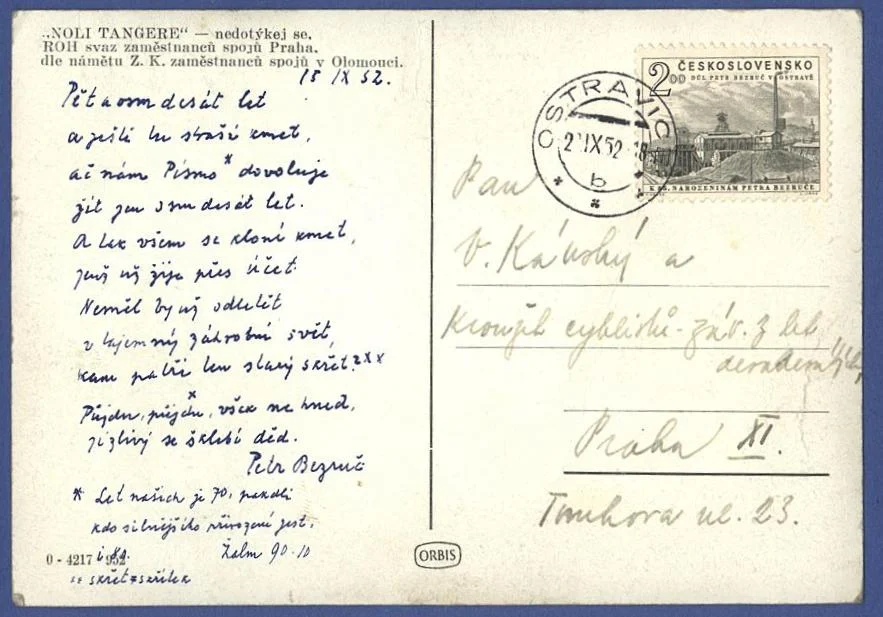 „NOLI TANGERE“ — nedotýkej se.
ROH svaz zaměstnanců spojů Praha.
dle námětu Z. K. zaměstnanců spojů v Olomouci.
15 IX 52.
Pět a osm desát let
a ještě tu straší kmet,
ač nám Písmo* dovoluje
žít jen osm desát let.
A tak všem se kloní kmet,
jenž už žije přes účet.
Neměl by už odletět
v tajemný záhrobní svět,
kam patří ten starý skřet?
Půjdu, půjdu, však ne hned,
jizlivý se šklebí děd.
Petr Bezruč
* Let našich je 70, pakli
kdo silnějšího přirození jest,
i 80. Žalm 90-10
skřet = skřítek
0 - 4217 - 952
ORBIS
2 00
ČESKOSLOVENSKO
DŮL PETR BEZRUČ V OSTRAVĚ
K 85. NAROZENINÁM PETRA BEZRUČE
OSTRAVIC
IX 52 - 18
b
Pan
V. Kávský a
Kroužek cyklistů - záv. z let
Praha XI.
ul. 23.